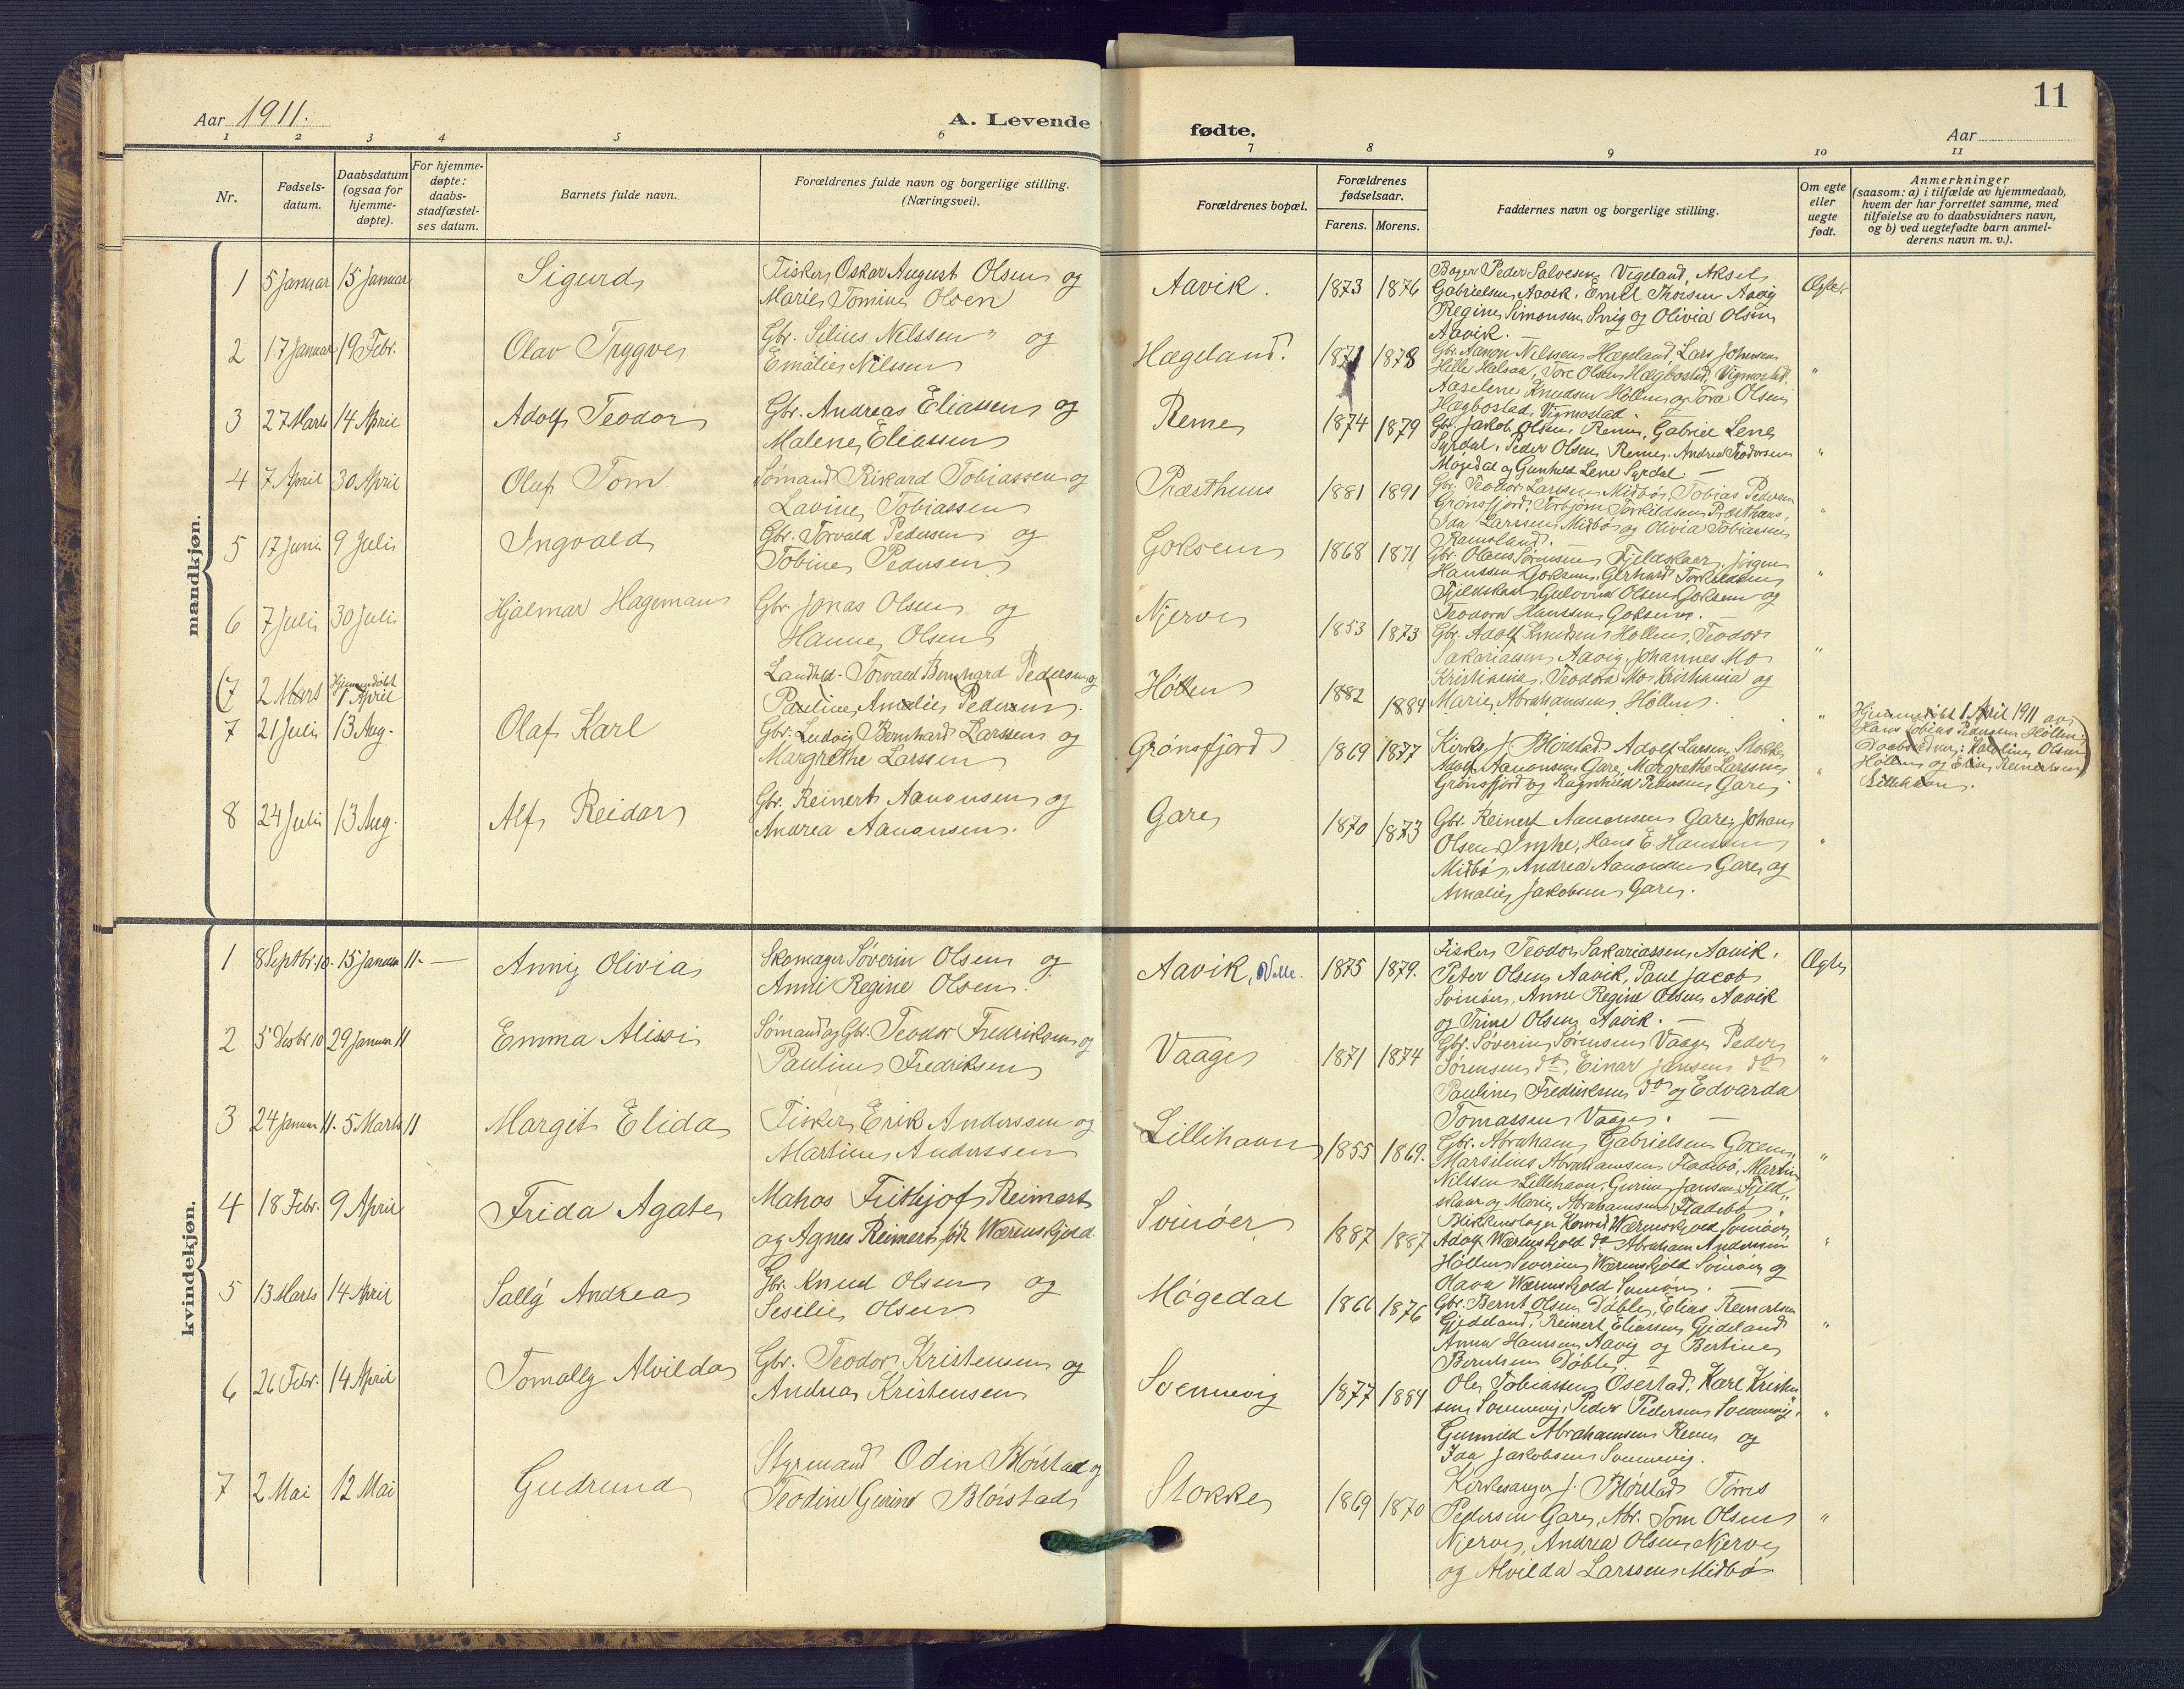 Aar 1911.
A. Levende
fødte.
11
Aar
1 2 3 4 5 6 7 8 9 10 11
Nr.
Fødsels-
datum.
Daabsdatum
(ogsaa for
hjemme-
døpte).
For hjemme-
døpte:
daabs-
stadfæstel-
ses datum.
Barnets fulde navn.
Forældrenes fulde navn og borgerlige stilling.
(Næringsvei).
Forældrenes bopæl.
Forældrenes
fødselsaar.
Farens. Morens.
Faddernes navn og borgerlige stilling.
Om egte
eller
uegte
født.
Anmerkninger
(saasom: a) i tilfælde av hjemmedaab,
hvem der har forrettet samme, med
tilføielse av to daabsvidners navn,
og b) ved uegtefødte barn anmel-
derens navn m. v.).
mandkjøn.
1 5 Januar 15 Januar Sigurd
Fisker Oskar August Olsen og
Marie Tomine Olsen
Aavik. 1873 1876
Peder Salvesen Vigeland, Aksel
Gabrielsen Aavik, Emil Aavig
Regine Simonsen og Olivia Olsen
Aavik.
2 17 Januar 19 Febr. Olav Trygve
Gbr. Selius Nilssen og
Emalie Nilssen
Hægeland. 1871 1878
Gbr. Aanon Nilssen Hægeland, Lars Johnsen
Hille Halsaa, Tore Olsen Hægbostad, Vigmostad,
Aaselene Knudsen Höllen og Tora Olsen
Hægbostad, Vigmostad.
3 27 Marts 14 April Adolf Teodor
Gbr. Andreas Eliassen og
Malene Eliassen
Reme 1874 1879
Gbr. Jakob Olsen, Reme, Gabriel Lene
Syrdal, Peder Olsen Reme, Andrea Teodorsen
Mögedal og Gunhild Lene Syrdal. —
4 7 April 30 April Oluf Tom.
Sømand Rikard Tobiassen og
Lavine Tobiassen
Præsthus 1881 1891
Gbr. Teodor Larssen Midbø, Tobias Pedersen
Grønsfjord, Torbjørn Torkildsen Præsthus,
Larssen Midbø og Olivia Tobiassen
Ramsland.
5 17 Juni 9 Juli Ingvald
Gbr. Torvald Pedersen og
Tobine Pedersen
Goksem 1868 1871
Gbr. Olaus Sørensen Fjeldskaar, Jørgen
Hanssen Goksem, Gerhard Torkildsen
Fjeldskaar, Olsen Goksem og
Teodora Hanssen Goksem. —
6 7 Juli 30 Juli Hjalmar Hageman
Gbr Jonas Olsen og
Hanne Olsen
Njerve 1853 1873
Gbr. Adolf Knudsen Höllen, Teodor
Sakariassen Aavig, Johannes Mo
Kristiania, Teodora Mo Kristiania og
Marie Abrahamsen Höllen.
(7 2 Mars Hjemmedöbt 1 April
Torvald Bernhard Pedersen og
Pauline Amalie Pedersen.
Höllen 1882 1884
Hjemmedöbt 1 April 1911 av
Hans Tobias Pedersen Höllen.
Karoline Olsen
Höllen og Elise Reinertsen)
Lillehavn.
7 21 Juli 13 Aug. Olaf Karl
Gbr. Ludvig Bernhard Larssen og
Margrethe Larssen
Grønsfjord 1869 1877
J. Blörstad, Adolf Larsen Stokke,
Adolf Aanonsen Gare, Margrethe Larssen
Grønsfjord og Ragnhild Pedersen Gare
8 24 Juli 13 Aug. Alf Reidar
Gbr. Reinert Aanonsen og
Andrea Aanonsen.
Gare 1870 1873
Gbr. Reinert Aanonsen Gare, Johan
Olsen Imhe, Hans E. Hanssen
Midbø, Andrea Aanonsen Gare, og
Amalie Jakobsen Gare.
kvindekjøn.
1 8 Septbr. 10. 15 Januar 11. — Annie Olivia
Skomager Söverin Olsen og
Anni Regine Olsen.
Aavik, 1875 1879.
Fisker Teodor Sakariassen Aavik,
Peter Olsen Aavik, Paul Jacob
Svinøer, Anne Regine Olsen Aavik
og Trine Olsen Aavik. —
Ægte
2 5 Desbr 10 29 Januar 11 Emma Alissi
Sømand og Gbr. Teodor Fredriksen og
Pauline Fredriksen
Vaage 1871 1874
Gbr. Söverin Sørensen Vaage, Peder
Sørensen do, Einar Jansen do
Pauline Fredriksen do og Edvarda
Tomassen Vaage. —
3 24 Januar 11. 5 Marts 11 Margit Elida
Fisker Erik Anderssen og
Martine Anderssen
Lillehavn 1855 1869.
Gbr. Abraham Gabrielsen Goxem,
Marsilius Abrahamsen Fladebö, Martin
Nilssen Lillehavn, Gurine Jansen Fjeld-
skaar og Marie Abrahamsen Fladebö.
4 18 Febr. 9 April Frida Agate
Frithjof Reimert
og Agnes Reimert født Wærenskjold.
Svinöer 1887 1887
Blikkenslager Konrad Wærenskjold Svinöer,
Adolf Wærenskjold do Abraham Andersen
Höllen, Severine Wærenskjold Svinöer og
Wærenskjold Svinöer. —
5 13 Marts 14 April Sally Andrea
Gbr. Knud Olsen og
Sesilie Olsen
Møgedal 1866 1876
Gbr. Bernt Olsen Döble, Elias Reinertsen
Gjideland, Reinert Eliassen Gjideland
Anna Hanssen Aavig og Bertine
Berntsen Döble. —
6 26 Febr. 14 April Tomally Alvilda
Gbr. Teodor Kristensen og
Andrea Kristensen
Svennevig 1877 1884
Ole Tobiassen Osestad, Karl Kristen-
sen Svennevig, Peder Pedersen Svennevig,
Gunnild Abrahamsen Reme og
Jakobsen Svennevig.
7 2 Mai 12 Mai Gudrund
Styrmand Odin Blörstad og
Teodine Gurine Blörstad
Stokke 1869 1870
Kirkesanger J. Blörstad, Törres
Pedersen Gare, Tom Olsen
Njerve, Andrea Olsen Njerve
og Alvilda Larssen Midbø